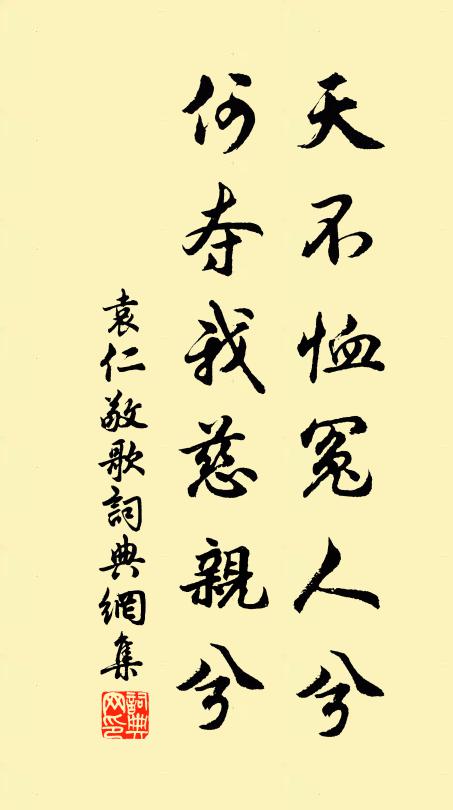 天不恤冤人兮
何夺我慈親兮
袁仁敬歌詞典網集
詞典网印